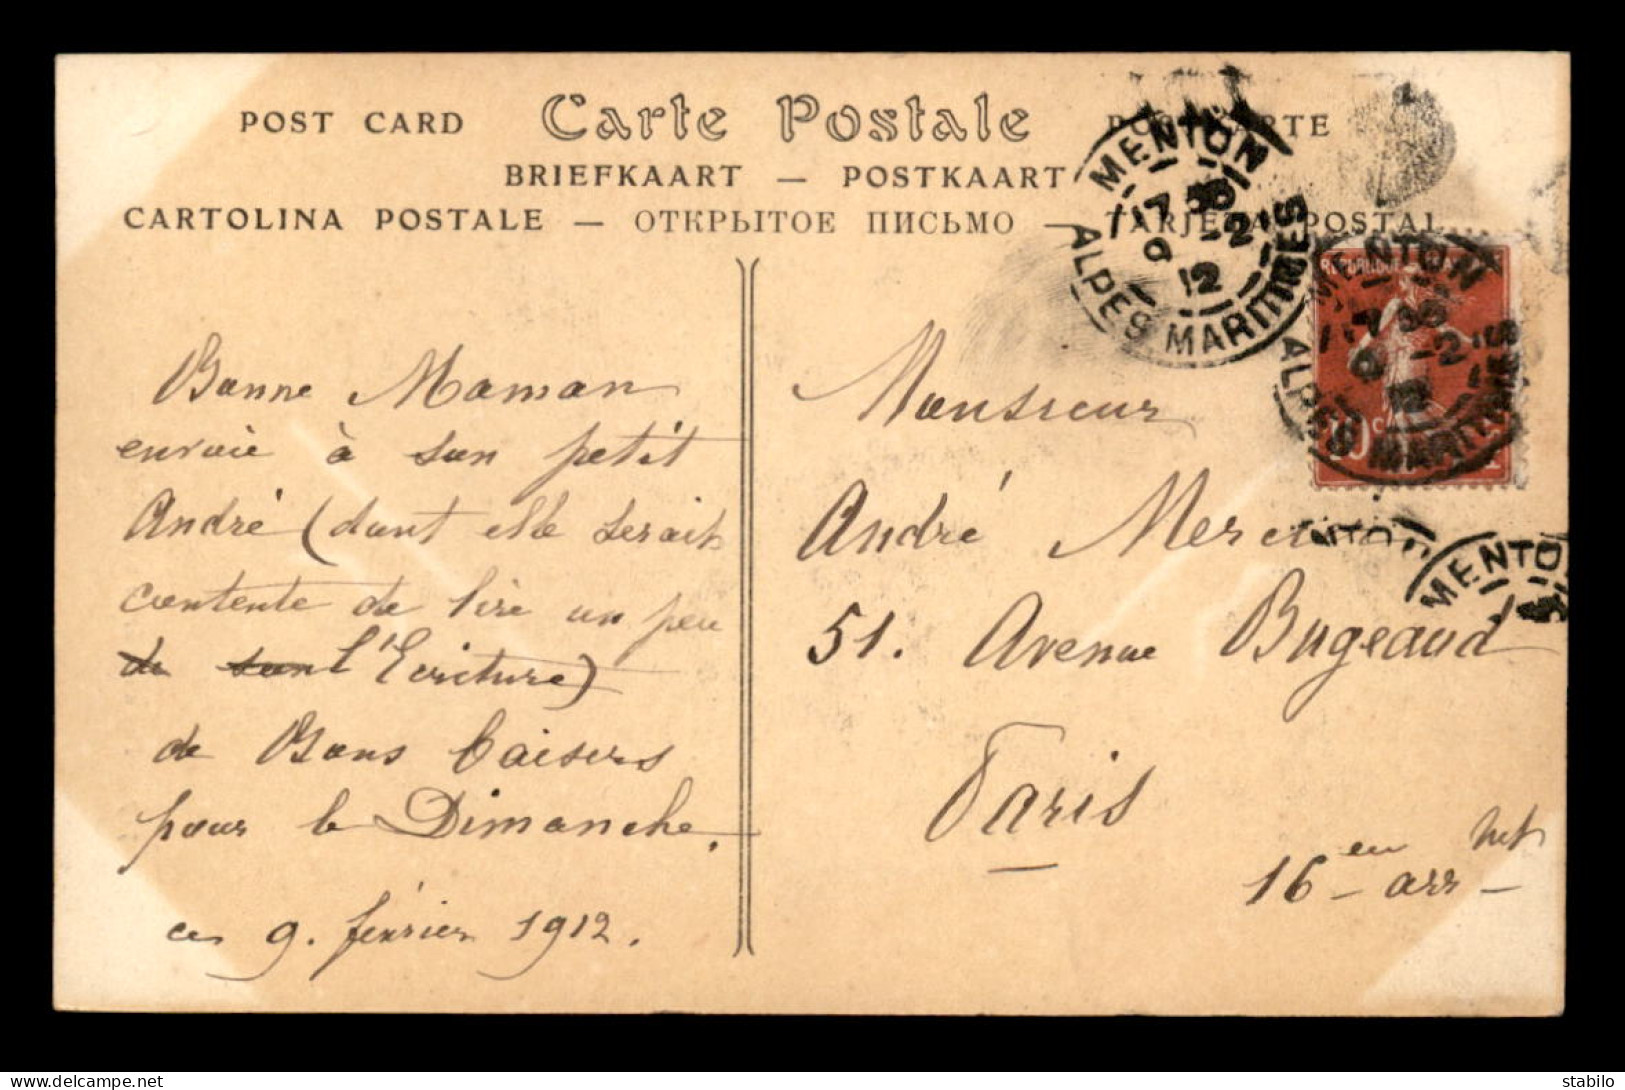 POST CARD Carte Postale POSTKARTE
BRIEFKAART — POSTKAART
CARTOLINA POSTALE — ОТКРЫТОЕ ПИСЬМО — TARJETA POSTAL
MENTON
17 30
9 -2
12
ALPES MARITIMES
MENTON
9 -2
12
ALPES MARITIMES
10 c
MENTO
Bonne Maman
envoie à son petit
André (dont elle serait
contente de lire un peu
de son l'Ecriture)
de Bons baisers
pour le Dimanche.
ce 9. février 1912.
Monsieur
André
51. Avenue Bugeaud
Paris
16 arr
delcampe.net
stabilo